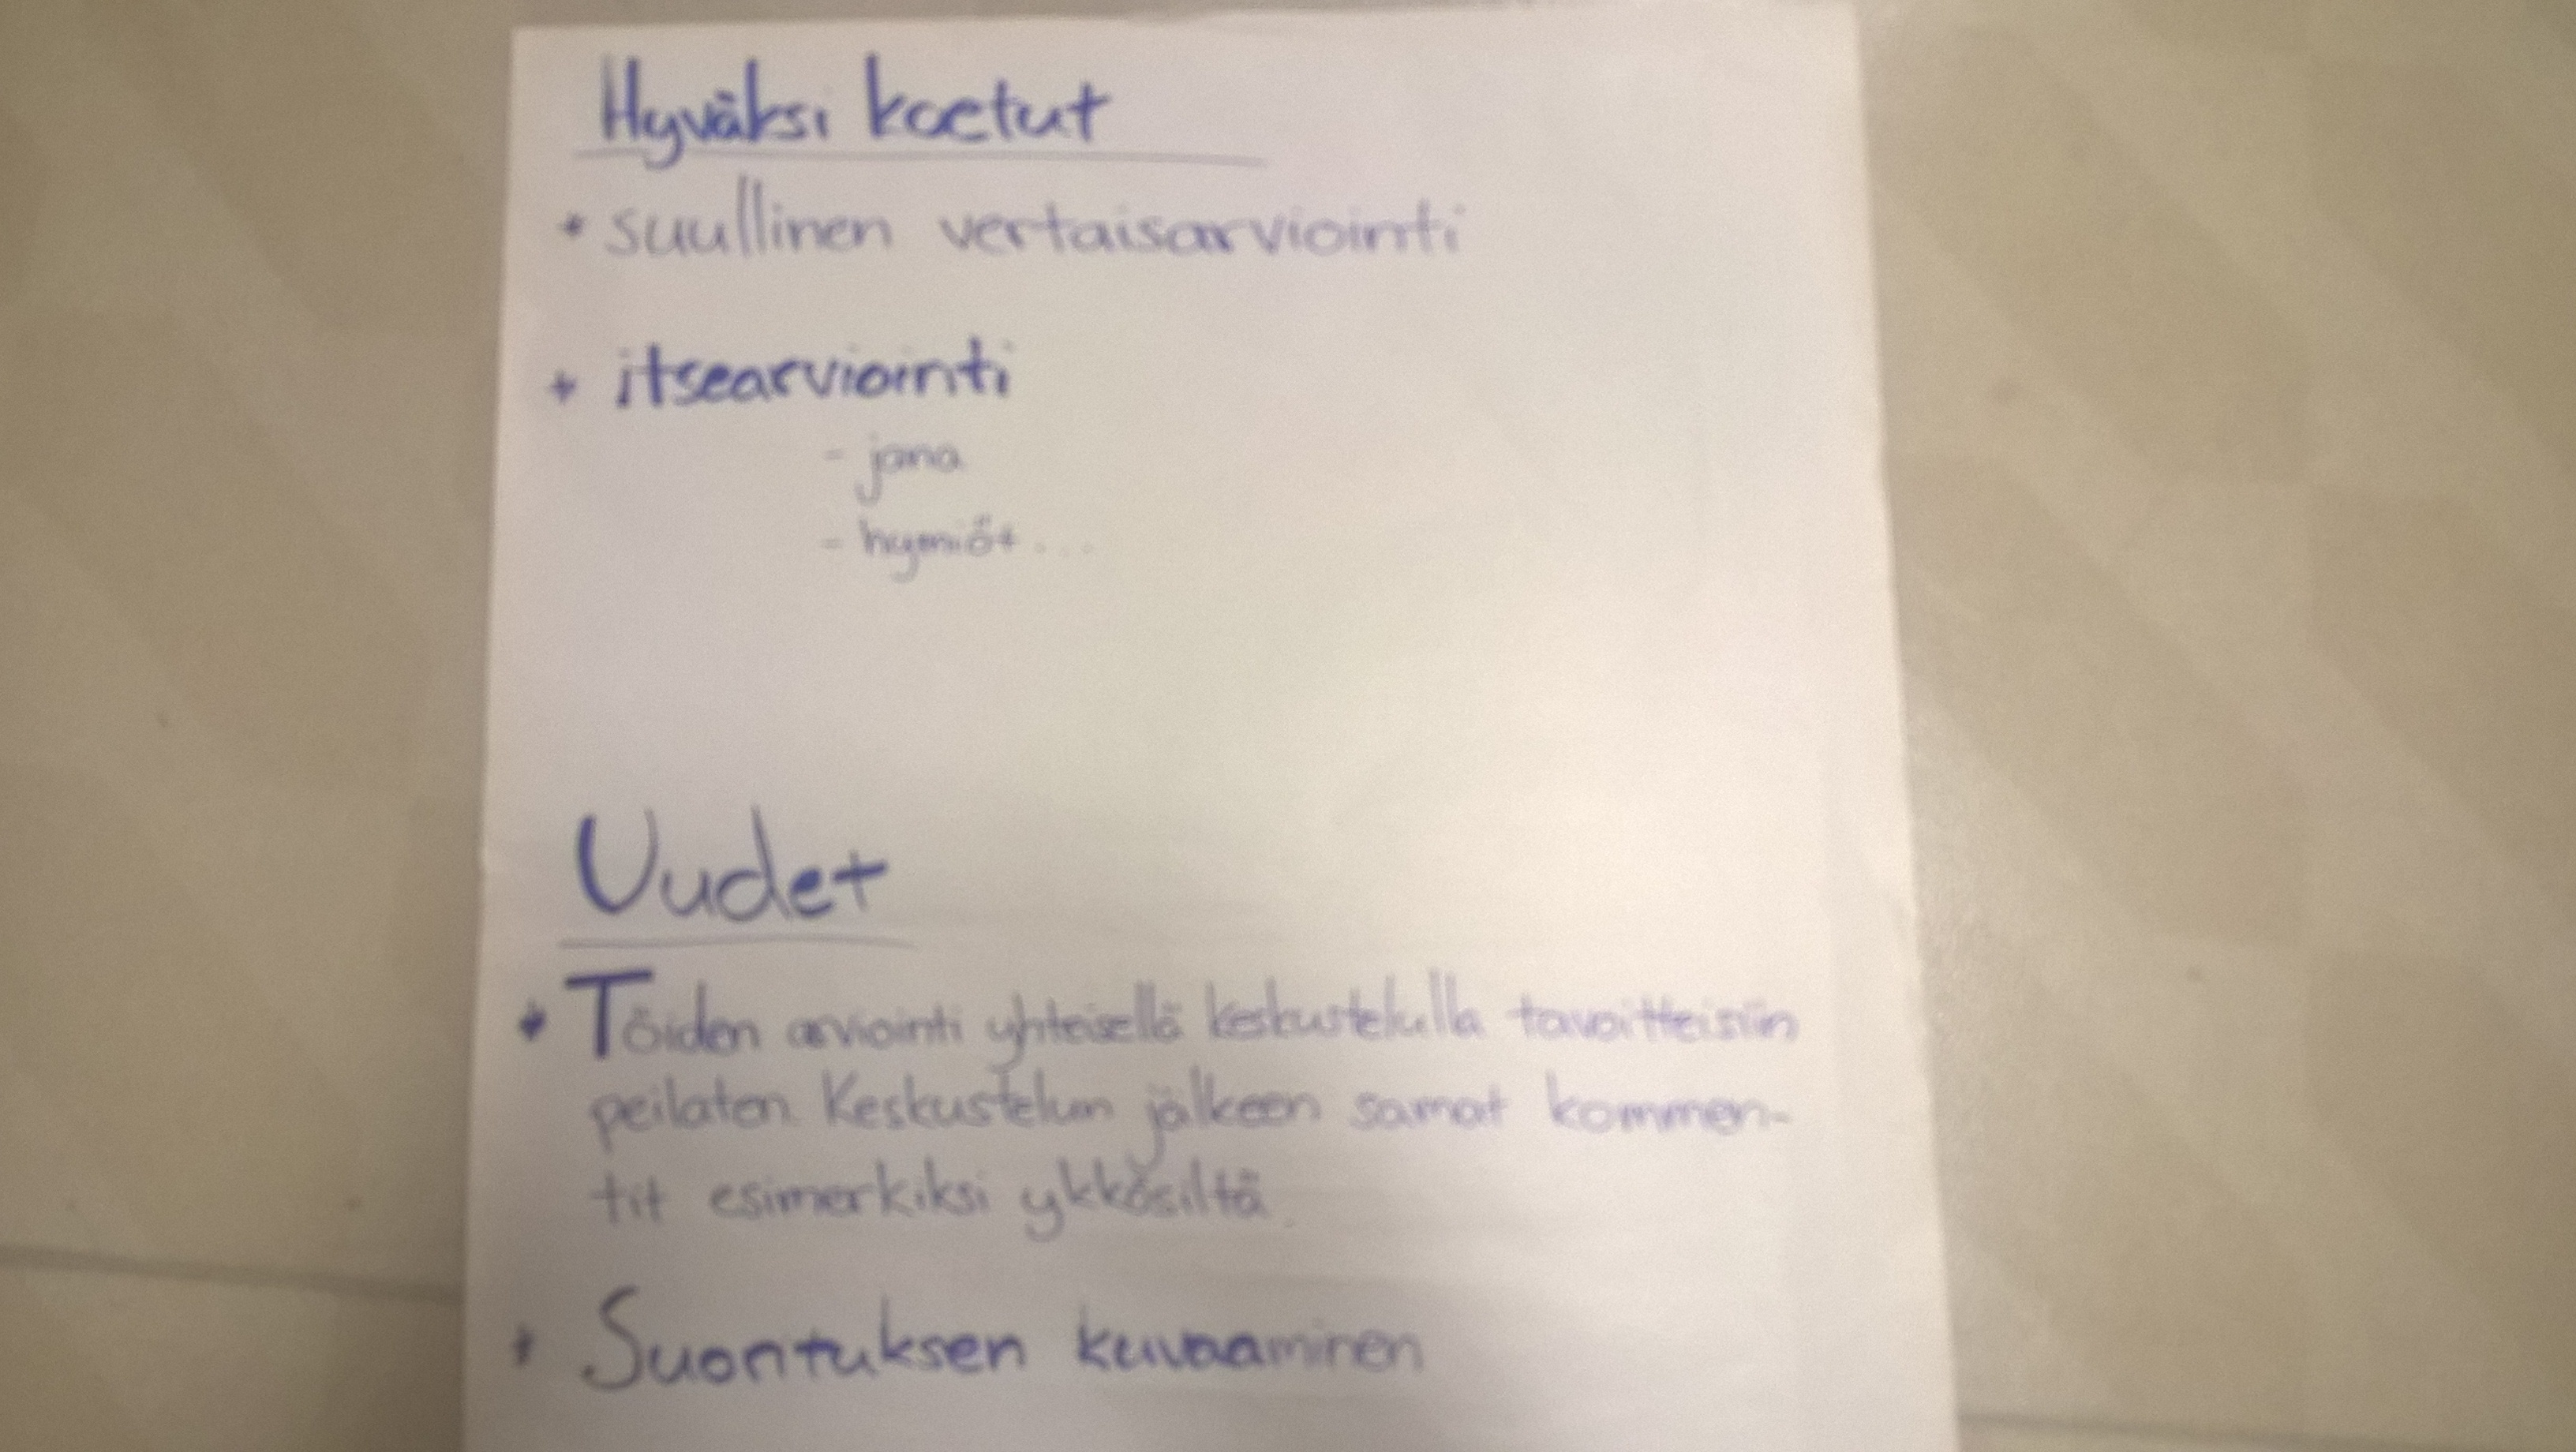 Hyväksi koetut
* suullinen vertaisarviointi
* itsearviointi
- jana
- hymiöt...
Uudet
* Töiden arviointi yhteisellä keskustelulla tavoitteisiin
peilaten. Keskustelun jälkeen samat kommen-
tit esimerkiksi ykkösiltä.
* Suontuksen kuvaaminen